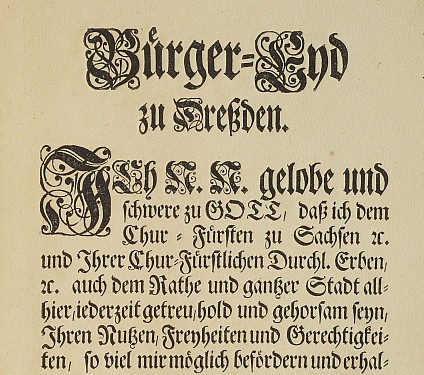 Bürger-Eyd
zu Dreßden.
ICh N. N. gelobe und
schwere zu GOTT, daß ich dem
Chur-Fürsten zu Sachsen ꝛc.
und Ihrer Chur-Fürstlichen Durchl. Erben,
ꝛc. auch dem Rathe und gantzer Stadt all-
hier, iederzeit getreu, hold und gehorsam seyn,
Ihren Nutzen, Freyheiten und Gerechtigkei-
ten, so viel mir möglich befördern und erhal-